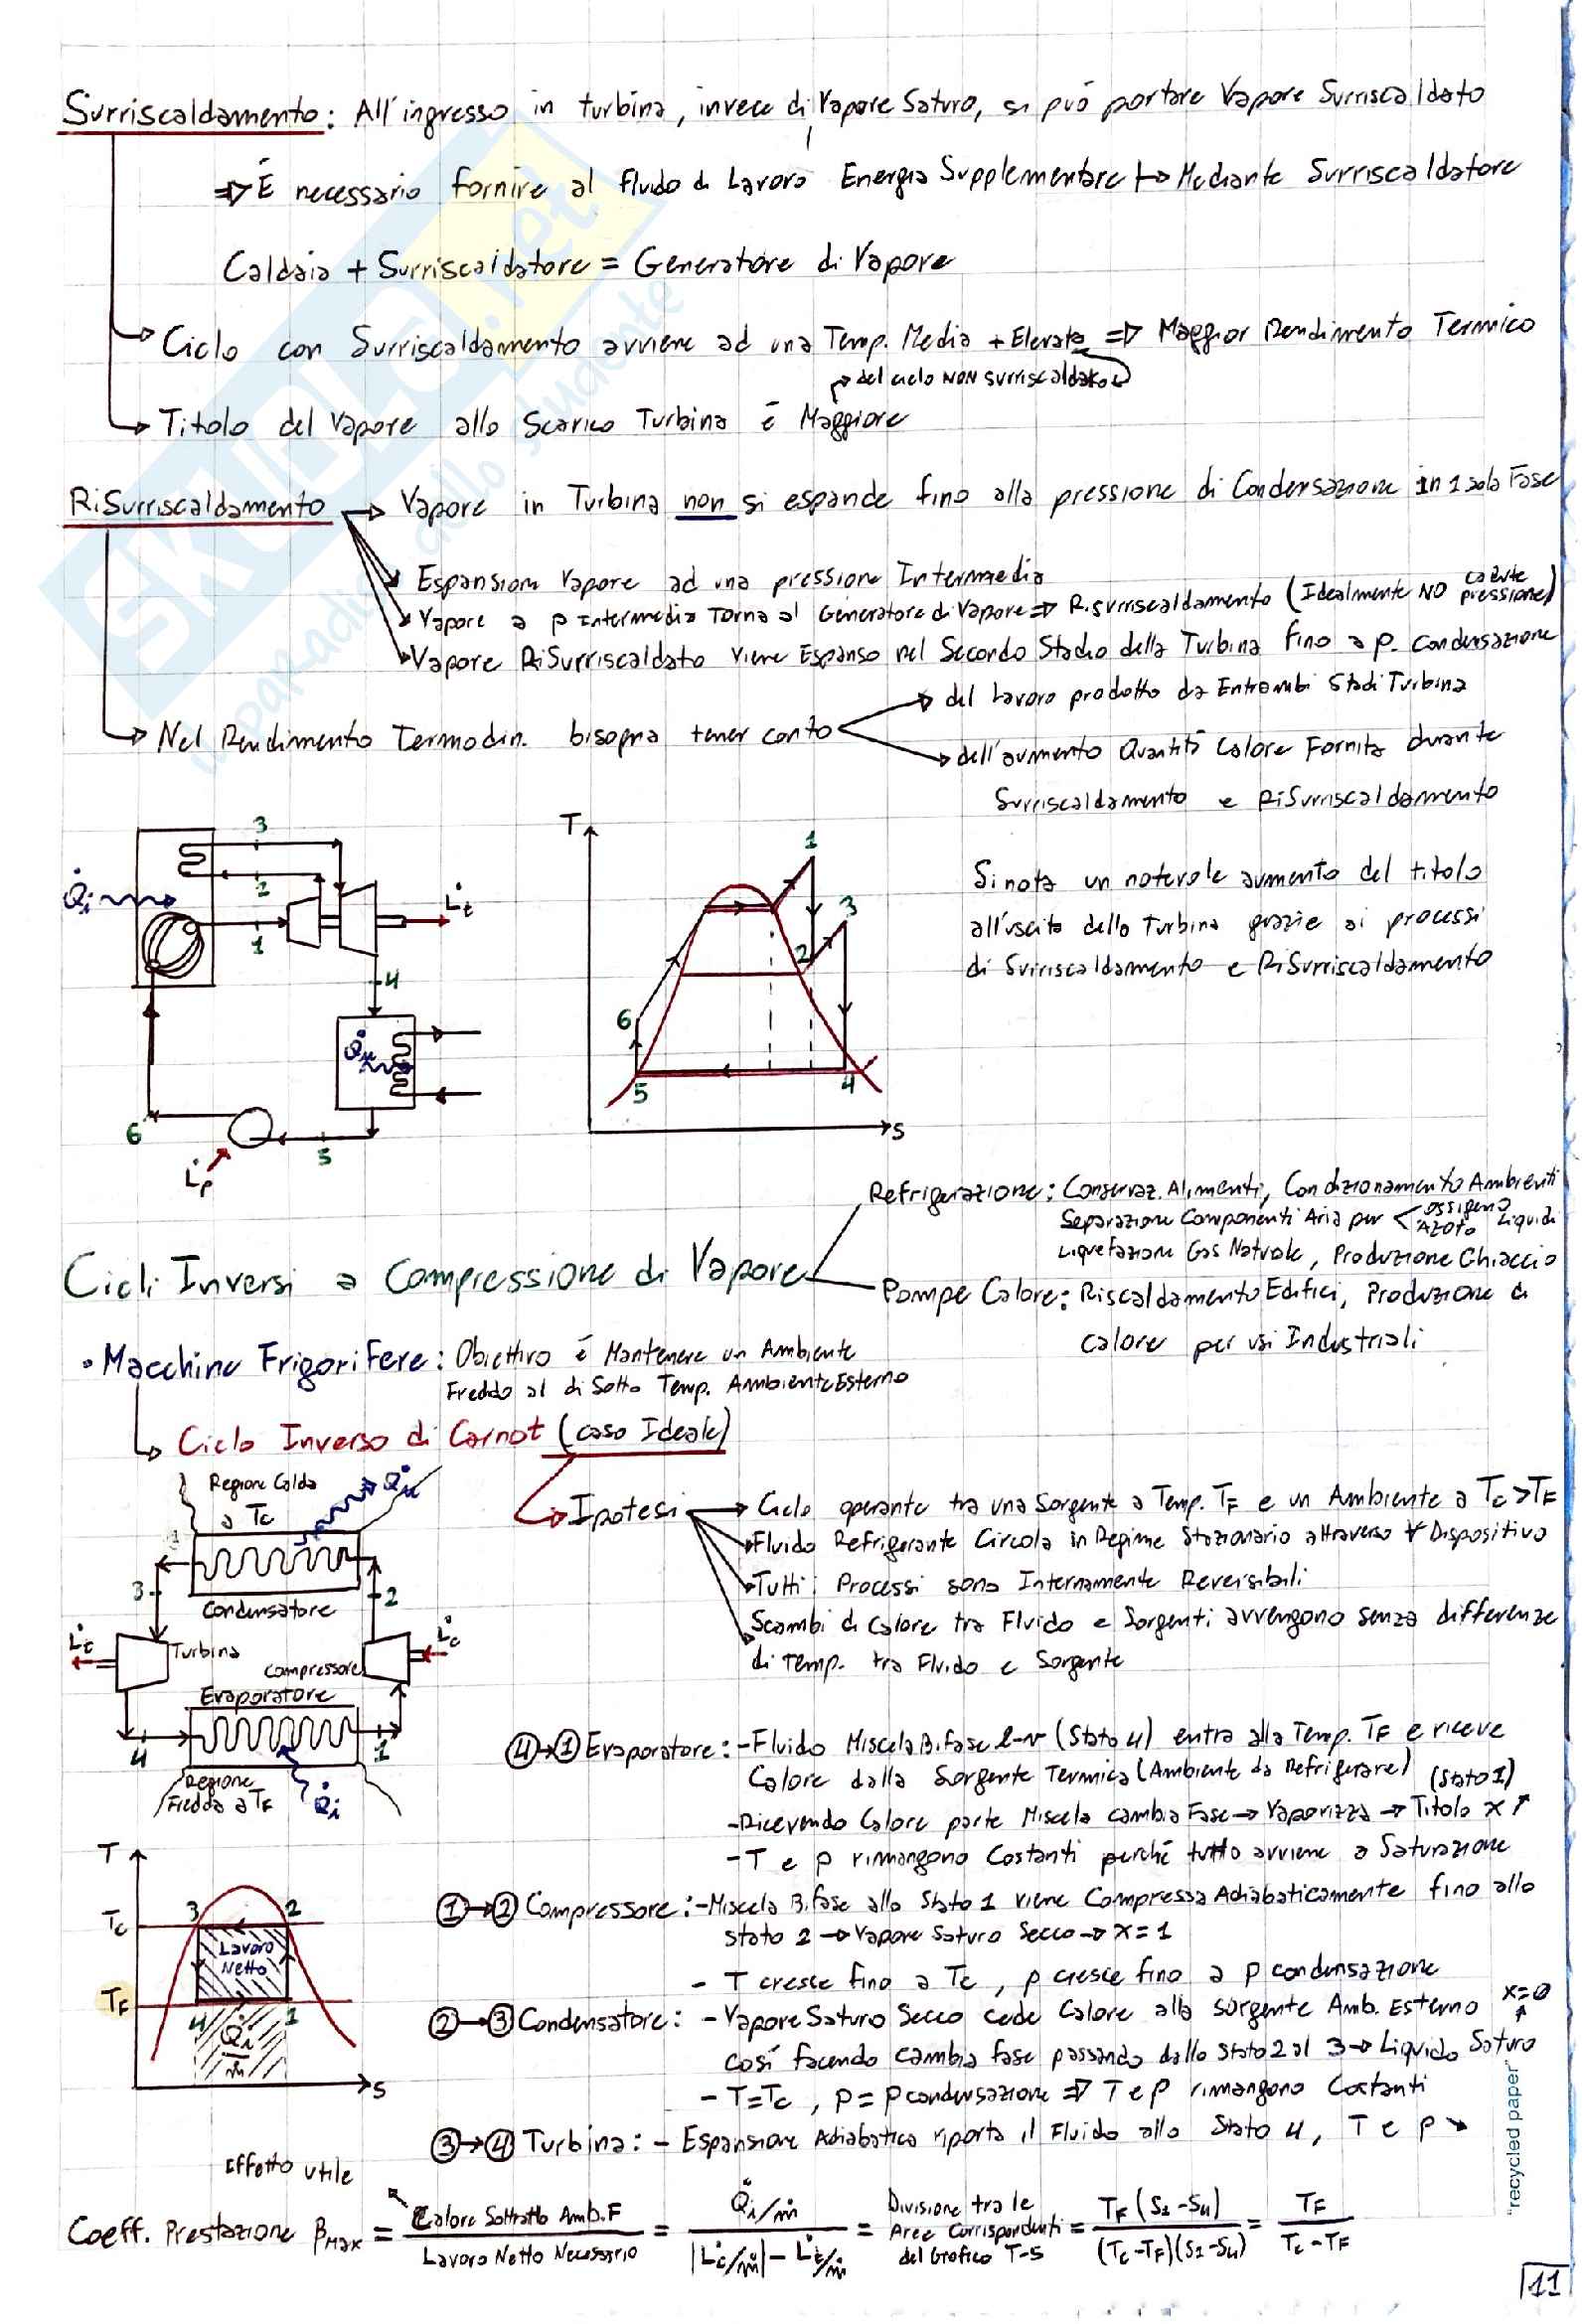 Surriscaldamento: All'ingresso in turbina, invece di Vapore Saturo, si può portare Vapore Surriscaldato
⇒ É necessario fornire al Fluido di Lavoro Energia Supplementare ↦ Mediante Surriscaldatore
Caldaia + Surriscaldatore = Generatore di Vapore
→ Ciclo con Surriscaldamento avviene ad una Temp. Media + Elevata ⇒ Maggior Rendimento Termico
→ del ciclo NON surriscaldato
→ Titolo del Vapore allo Scarico Turbina é Maggiore
RiSurriscaldamento → Vapore in Turbina non si espande fino alla pressione di Condensazione in 1 sola Fase
Espansione Vapore ad una pressione Intermedia
Vapore a p Intermedia Torna al Generatore di Vapore ⇒ Risurriscaldamento (Idealmente NO cadute pressione)
Vapore RiSurriscaldato viene Espanso nel Secondo Stadio della Turbina fino a p. condensazione
→ Nel Rendimento Termodin. bisogna tener conto
→ del Lavoro prodotto da Entrambi Stadi Turbina
→ dell'aumento Quantità Calore Fornita durante
Surriscaldamento e RiSurriscaldamento
3
2
1
Q̇i
L̇t
4
Q̇u
5
6
L̇p
T
1
3
2
6
5
4
s
Si nota un notevole aumento del titolo
all'uscita della Turbina grazie ai processi
di Surriscaldamento e RiSurriscaldamento
Cicli Inversi a Compressione di Vapore
Refrigerazione: Conservaz. Alimenti, Condizionamento Ambienti
Separazione Componenti Aria per < ossigeno Azoto Liquidi
Liquefazione Gas Naturale, Produzione Ghiaccio
Pompe Calore: Riscaldamento Edifici, Produzione di
calore per usi Industriali
• Macchine Frigorifere: Obiettivo é Mantenere un Ambiente
Freddo al di Sotto Temp. Ambiente Esterno
→ Ciclo Inverso di Carnot (caso Ideale)
→ Ipotesi → Ciclo operante tra una Sorgente a Temp. TF e un Ambiente a Tc > TF
Fluido Refrigerante Circola in Regime Stazionario attraverso ∀ Dispositivo
Tutti i Processi sono Internamente Reversibili
Scambi di Calore tra Fluido e Sorgenti avvengono senza differenze
di Temp. tra Fluido e Sorgente
Regione Calda
a Tc
Q̇u
3
2
Condensatore
L̇t
Turbina
Compressore
L̇c
Evaporatore
4
1
Regione
Fredda a TF
Q̇i
④→① Evaporatore: - Fluido Miscela Bifase l-v (Stato 4) entra alla Temp. TF e riceve
Calore dalla Sorgente Termica (Ambiente da Refrigerare)
(Stato 1)
- Ricevendo Calore parte Miscela cambia Fase → Vaporizza → Titolo x ↑
- T e p rimangono Costanti perché tutto avviene a Saturazione
①→② Compressore: - Miscela Bifase allo Stato 1 viene Compressa Adiabaticamente fino allo
stato 2 → Vapore Saturo Secco → x = 1
- T cresce fino a Tc, p cresce fino a p condensazione
②→③ Condensatore: - Vapore Saturo Secco cede Calore alla sorgente Amb. Esterno
x=0
così facendo cambia fase passando dallo stato 2 al 3 → Liquido Saturo
- T=Tc, p = p condensazione ⇒ T e p rimangono Costanti
③→④ Turbina: - Espansione Adiabatica riporta il Fluido allo Stato 4, T e p ↘
T
Tc
TF
3
2
Lavoro
Netto
4
1
Q̇i/ṁ
s
Effetto utile
Coeff. Prestazione βMax = Calore Sottratto Amb. F / Lavoro Netto Necessario = Q̇i/ṁ / |L̇c/ṁ| - L̇t/ṁ = Divisione tra le Aree Corrispondenti del Grafico T-s = TF (S1-S4) / (Tc-TF)(S1-S4) = TF / Tc-TF
"recycled paper"
11
SKUOLA.net